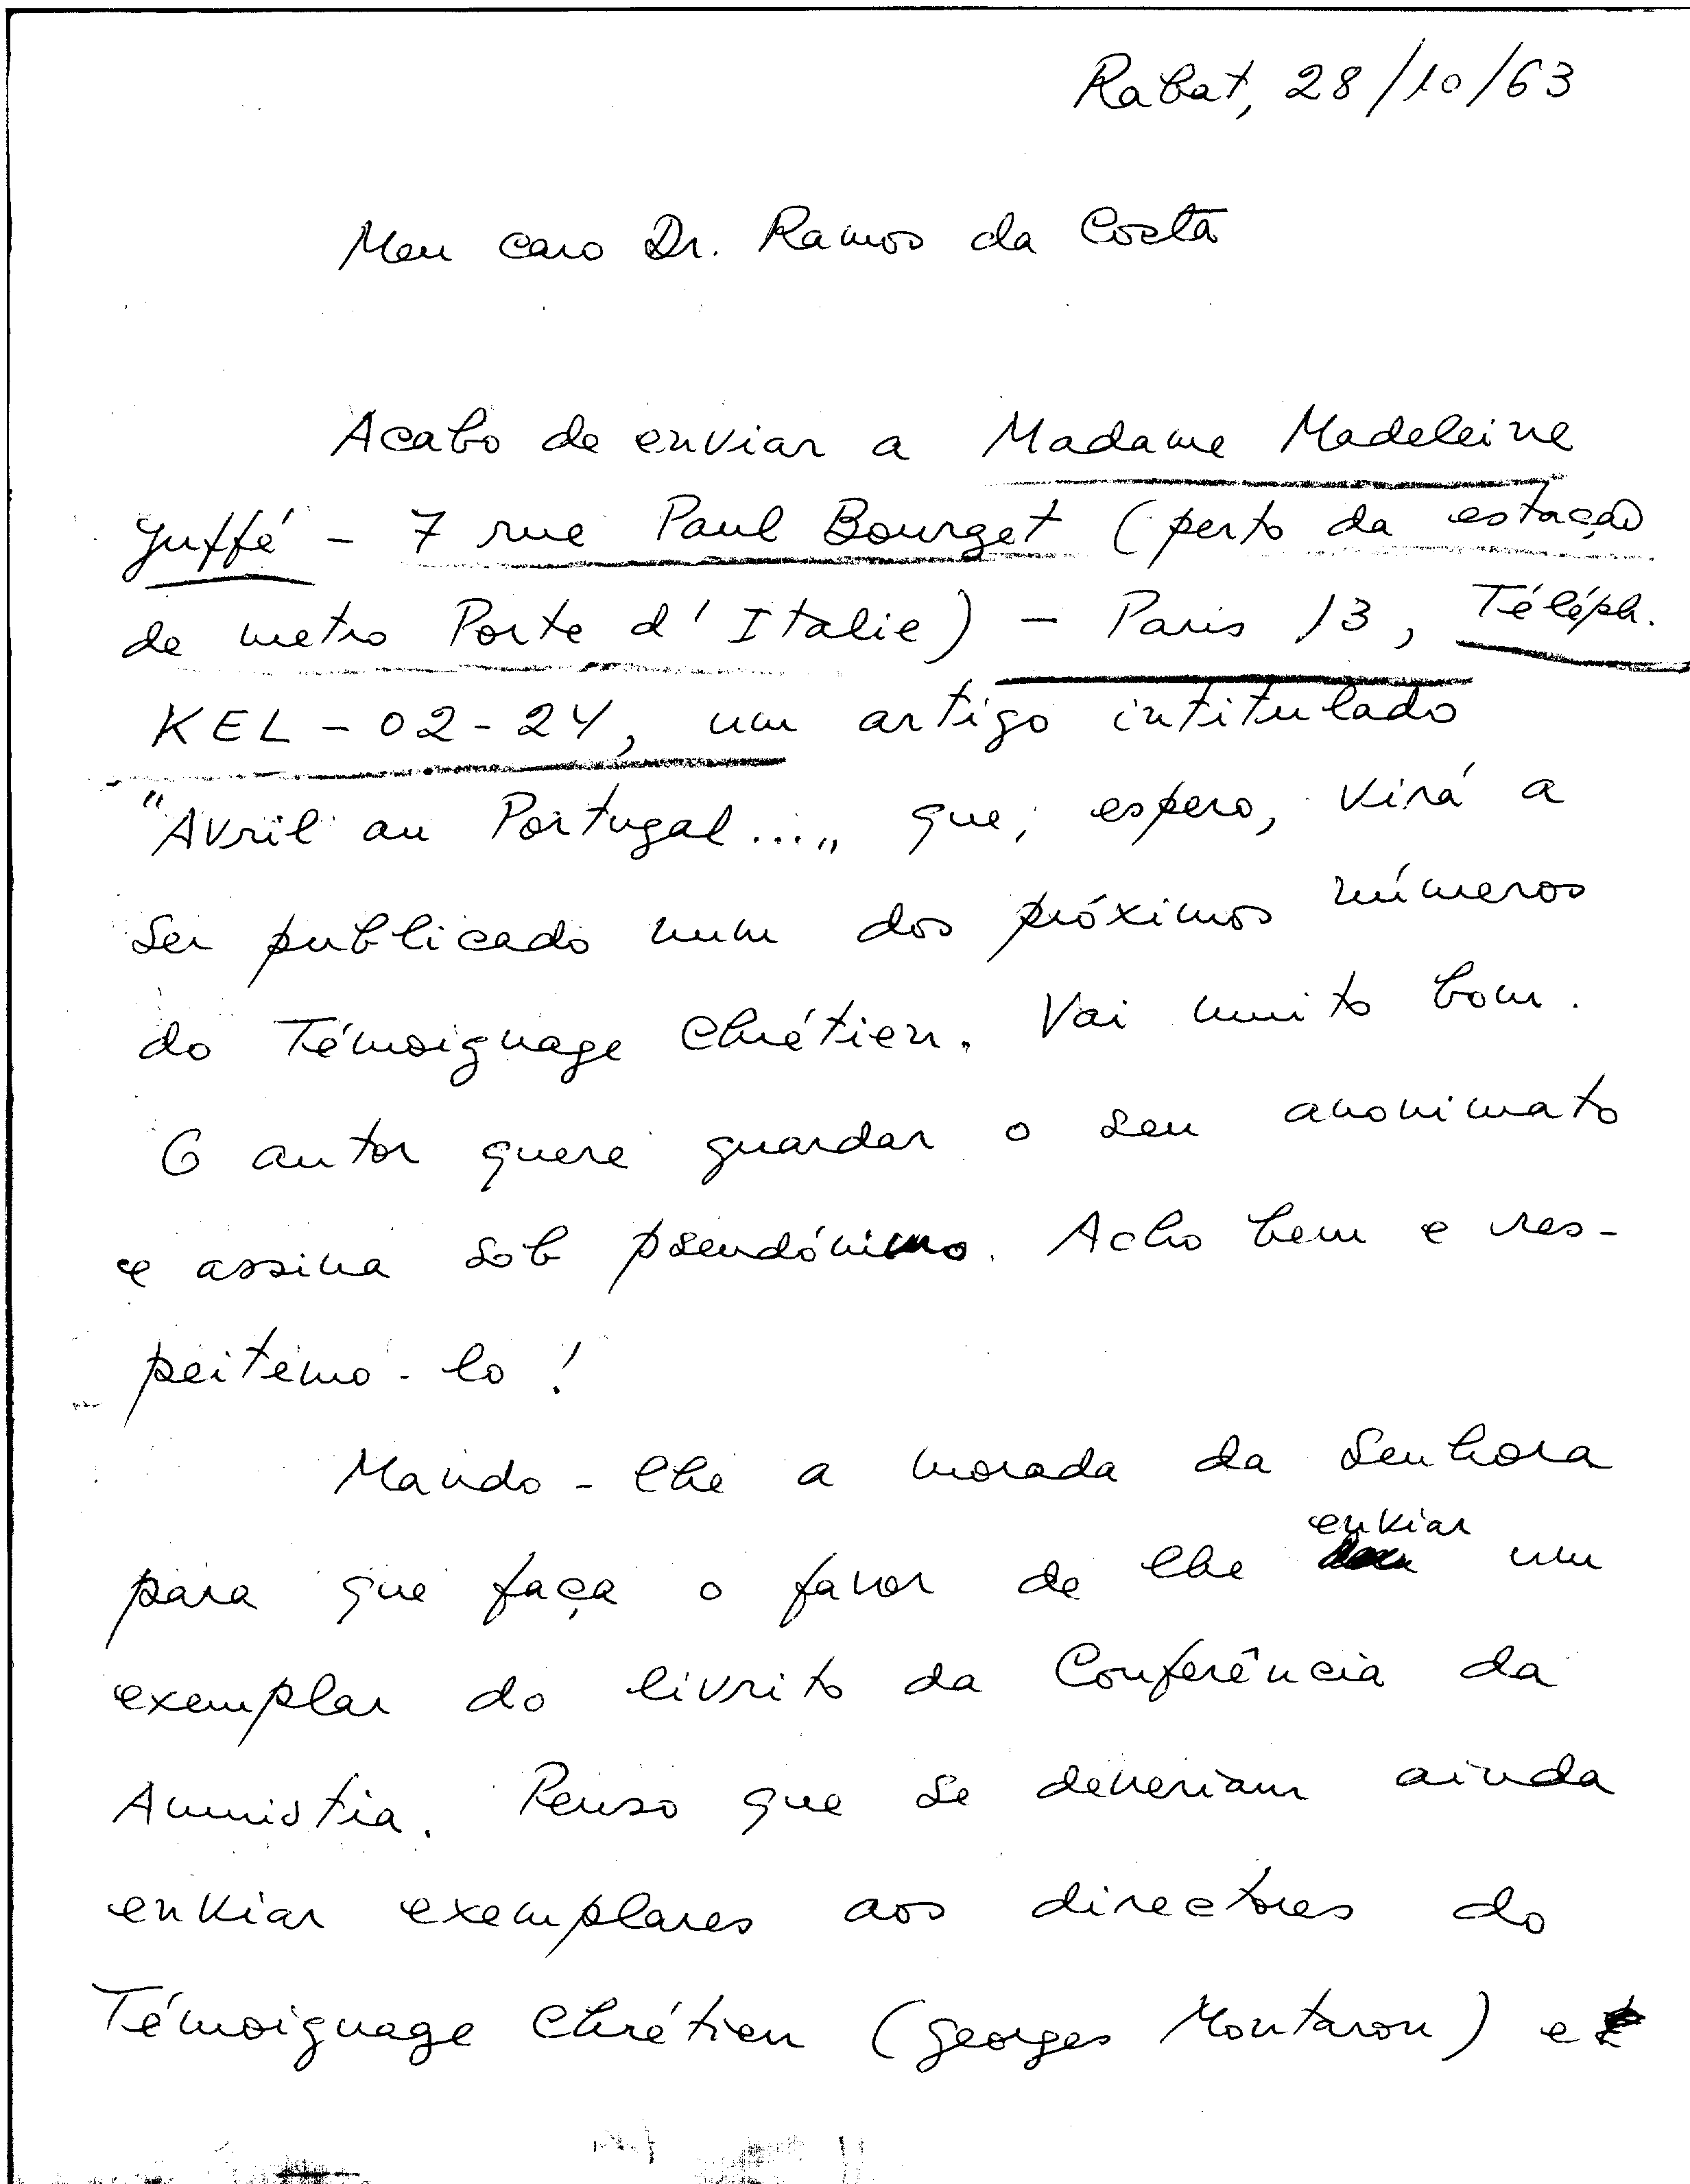 Rabat, 28/10/63
Meu caro Dr. Ramos da Costa
Acabo de enviar a Madame Madeleine
Yuffé - 7 rue Paul Bourget (perto da estação
de metro Porte d'Italie) - Paris 13, Téléph.
KEL - 02 - 24, um artigo intitulado
"Avril au Portugal...„ que, espero, virá a
ser publicado num dos próximos números
do Témoignage Chrétien. Vai muito bom.
O autor quere guardar o seu anonimato
e assina sob pseudónimo. Acho bem e res-
peitemo-lo!
Mando-lhe a morada da Senhora
para que faça o favor de lhe enviar um
exemplar do livrito da Conferência da
Amnistia. Penso que se deveriam ainda
enviar exemplares aos directores do
Témoignage Chrétien (Georges Montaron) e